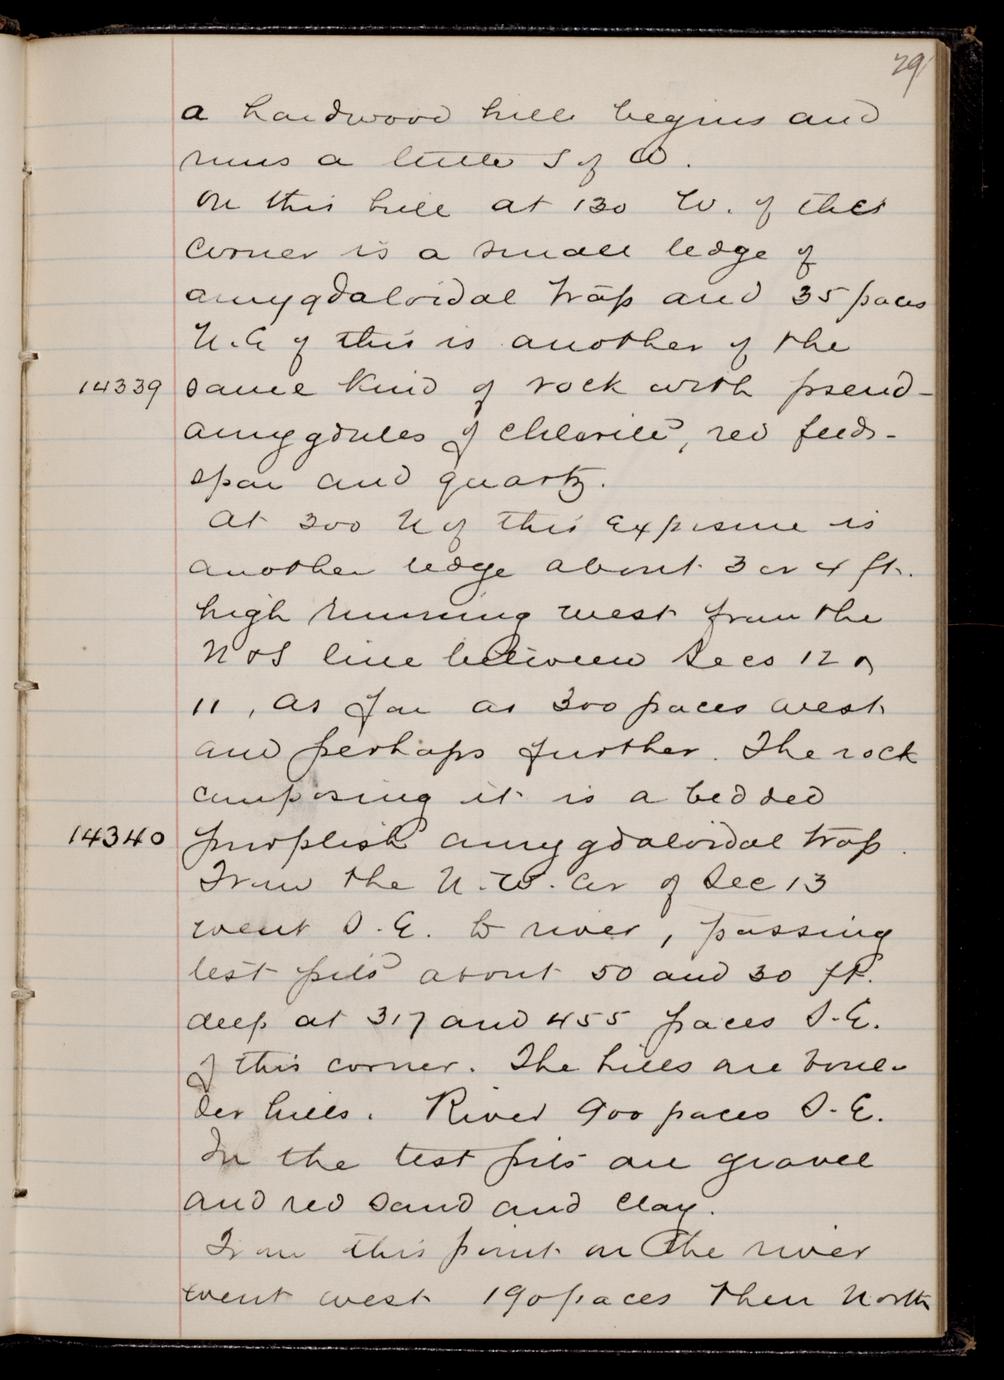 29
a hardwood hill begins and
runs a little S of W.
On this hill at 130 W. of this
corner is a small ledge of
amygdaloidal trap and 35 paces
N.E of this is another of the
14339 same kind of rock with pseud-
amygdules of chlorite, red feld-
spar and quartz.
At 300 N of this exposure is
another ledge about 3 or 4 ft.
high running west from the
N & S line between Secs 12 &
11, as far as 300 paces west
and perhaps further. The rock
composing it is a bedded
14340 purplish amygdaloidal trap.
From the N.W. cor of Sec 13
went S.E. to river, passing
test pits about 50 and 30 ft.
deep at 317 and 455 paces S.E.
of this corner. The hills are boul-
der hills. River 900 paces S.E.
In the test pits are gravel
and red sand and clay.
From this point on the river
went west 190 paces then North